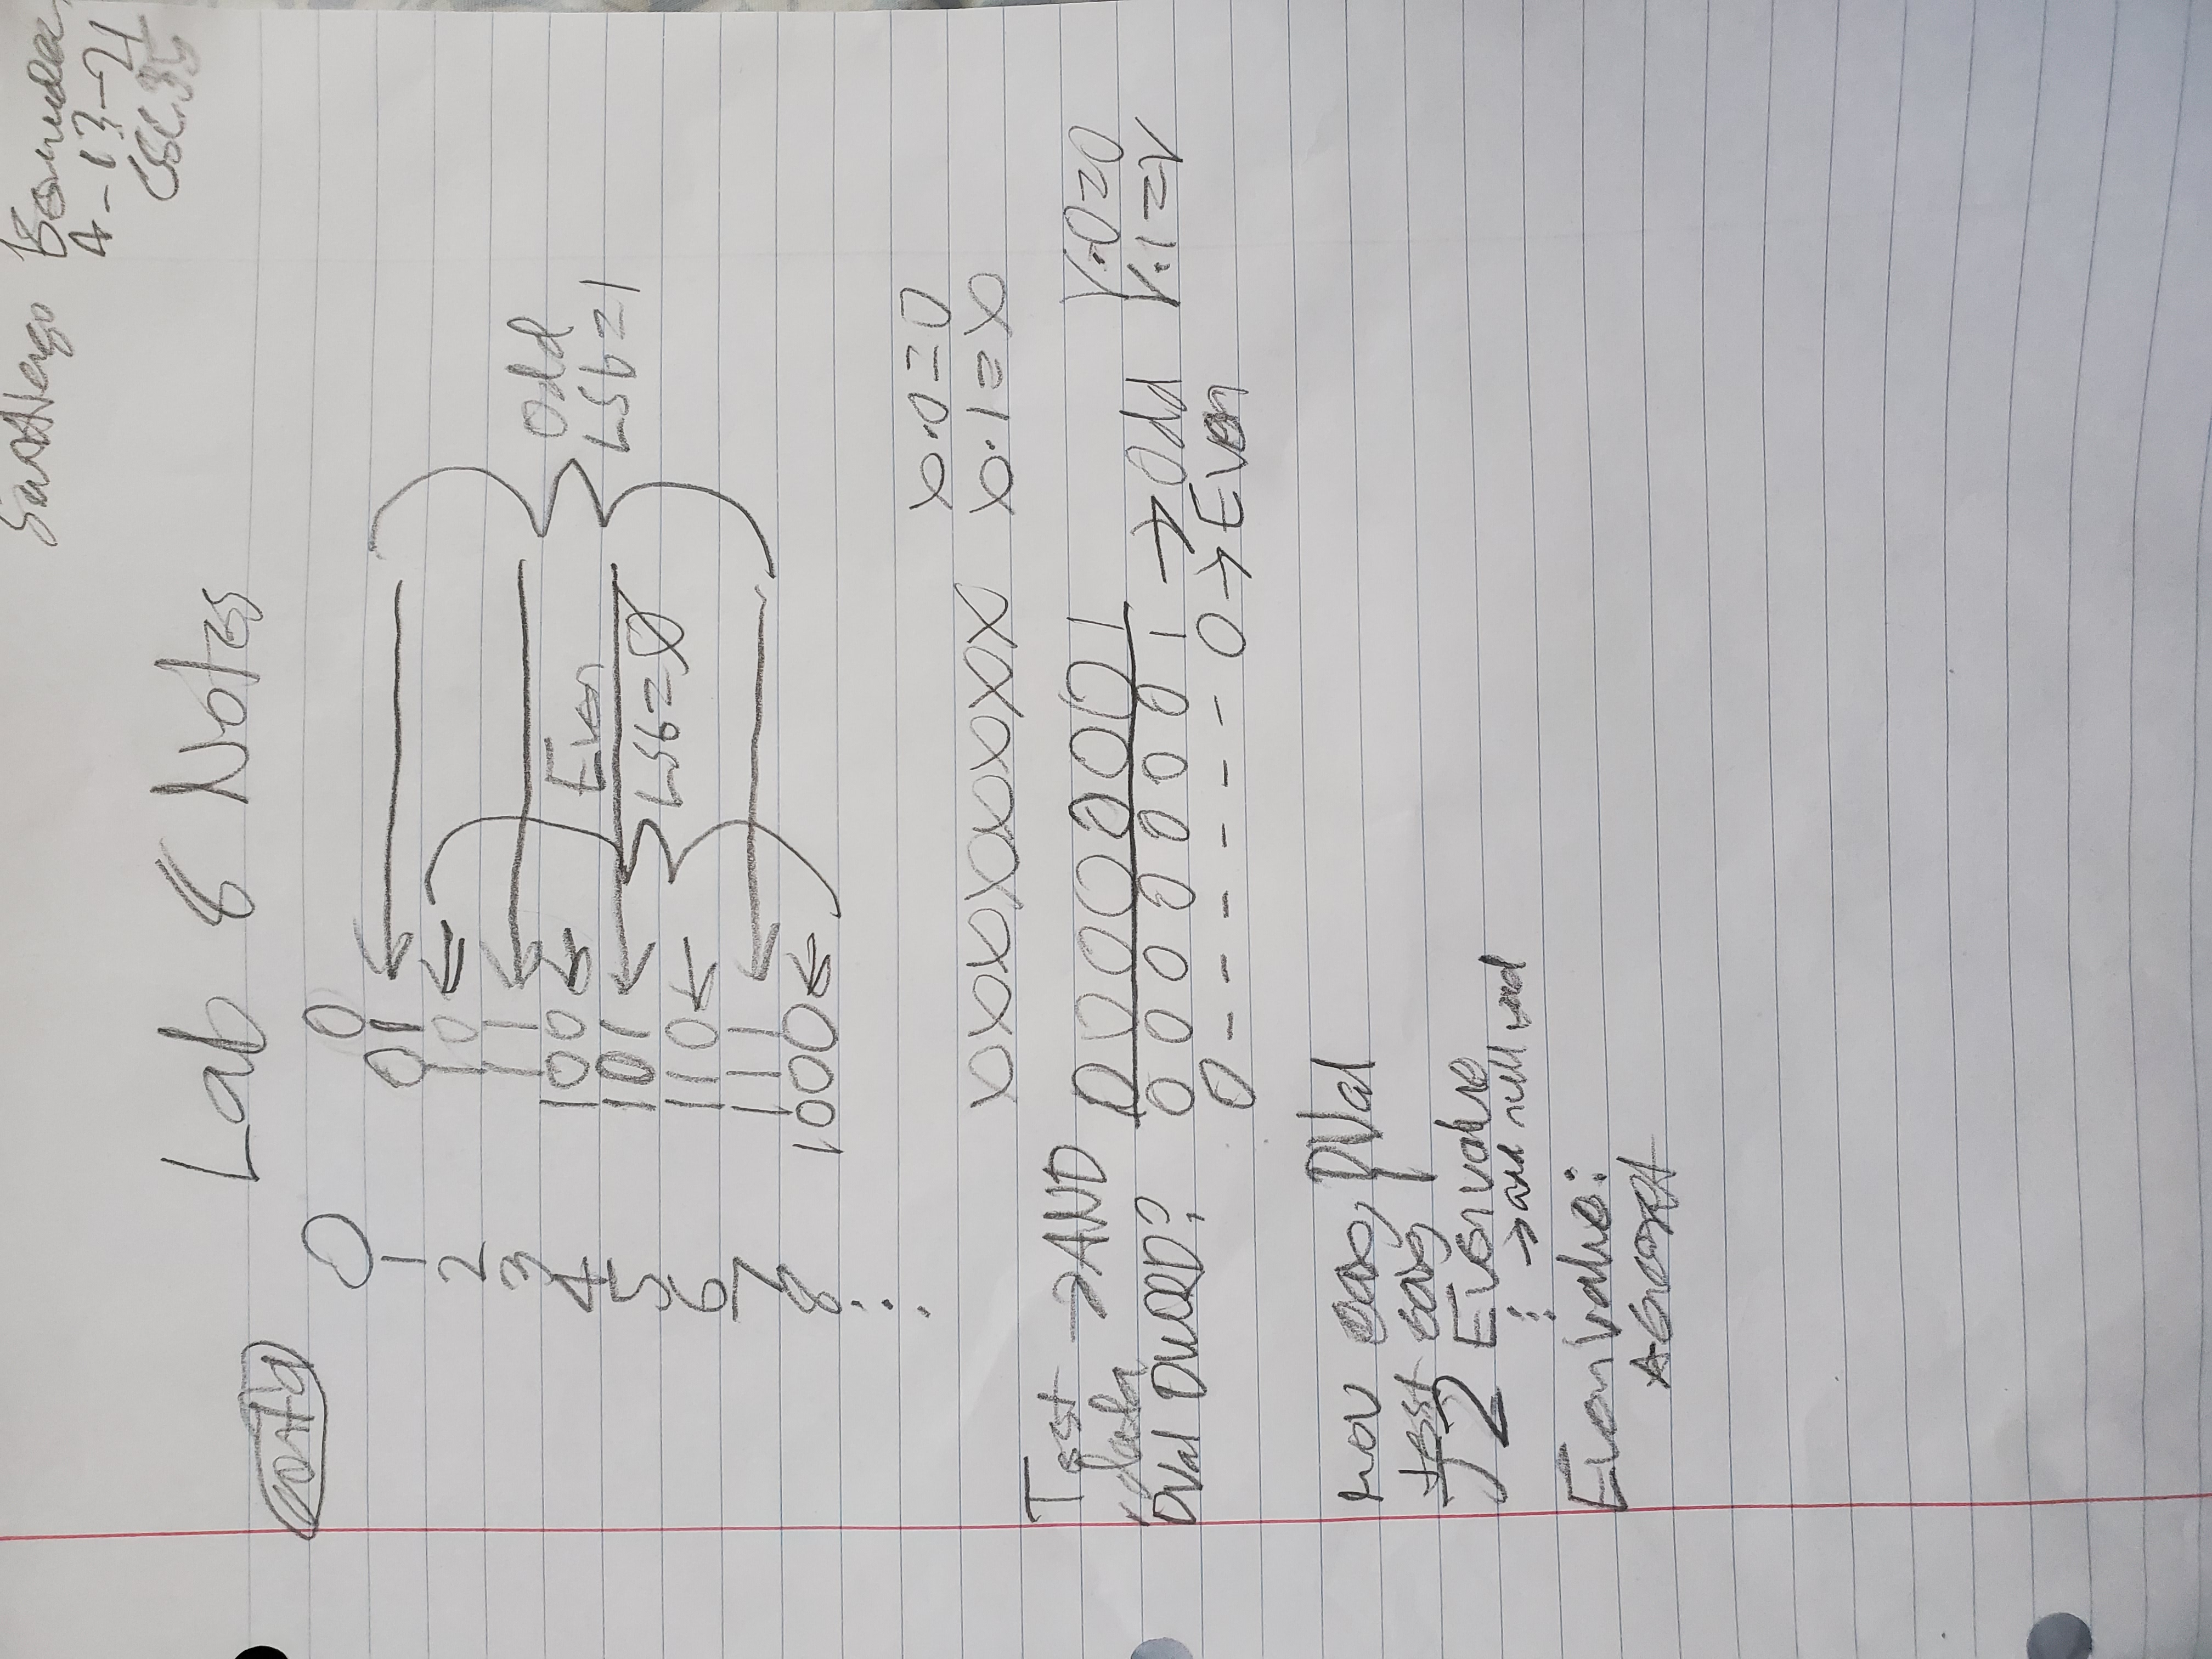 Santiago
4-13-21
CSC 35
Lab 8 Notes
cont'd
0 0
1 01
2 10
3 11
4 100
5 101
6 110
7 111
8 1000
Even
LSb=0
Odd
LSb=1
x·0=0
xxxxxxxx x·1=x
Test → AND 0 0 0 0 0 0 0 1 Y·0=0
.data
DVal DWORD? 0 0 0 0 0 0 0 1 → Odd Y·1=Y
0 - - - - - - 0 → Even
mov eax, DVal
test eax, 1
JZ Evenvalue
: → add null
Evenvalue: